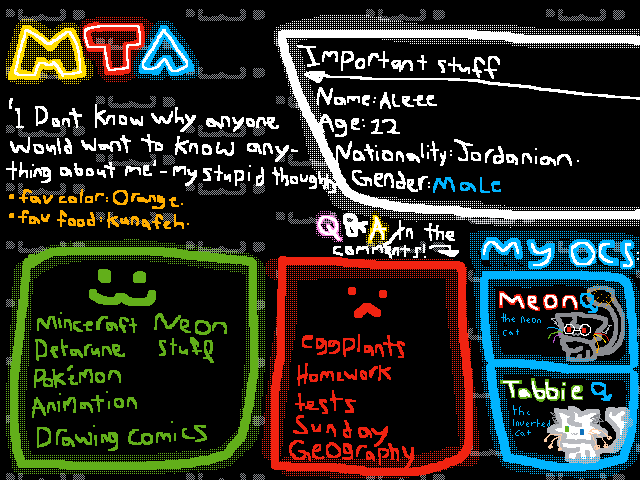 MTA
Important stuff
Name: Aleee
Age: 12
Nationality: Jordanian.
Gender: Male
"I Dont know why anyone
would want to know any-
thing about me" - my stupid thoughts
• fav color: Orange.
• fav food: Kanafeh.
Q&A in the
comments!
My OCS:
Minceraft Neon
Detarune stuff
Pokémon
Animation
Drawing comics
eggplants
Homework
tests
Sunday
Geography
Meon
the neon
cat
Tabbie
the
inverted
cat